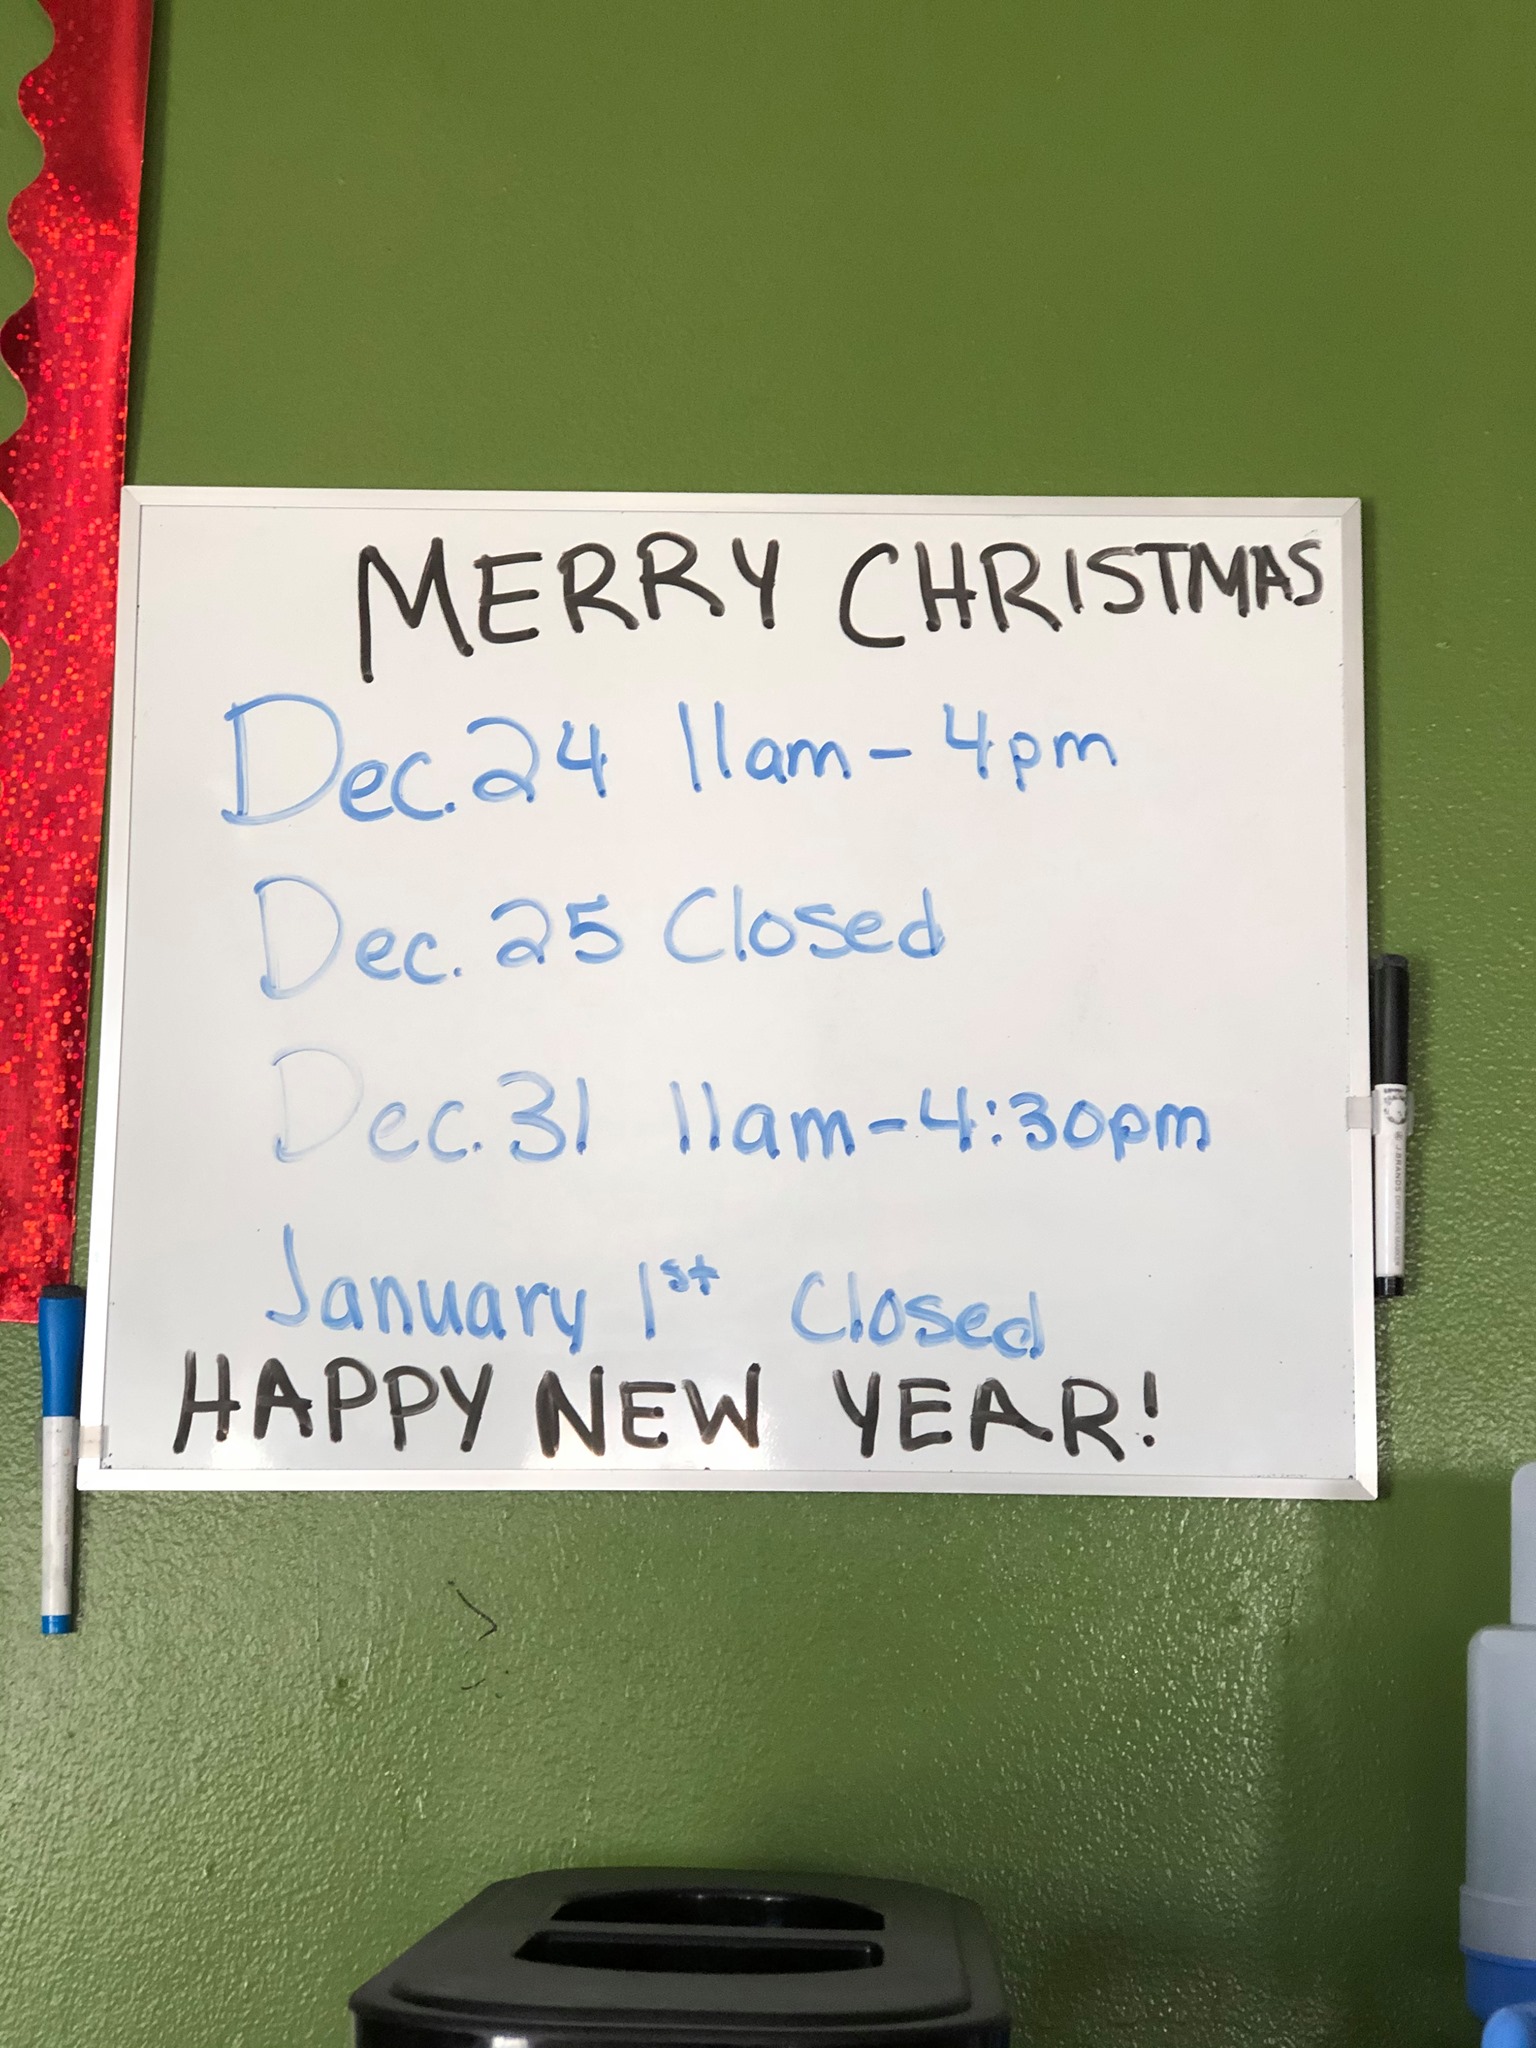 MERRY CHRISTMAS
Dec. 24 11am - 4pm
Dec. 25 Closed
Dec. 31 11am - 4:30pm
January 1st Closed
HAPPY NEW YEAR!